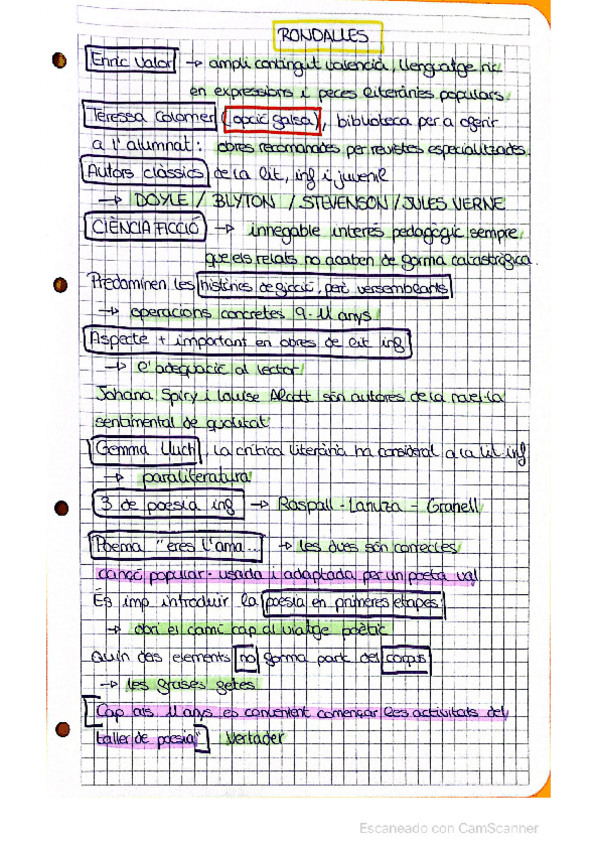 RONDALLES
Enric Valor → ampli contingut valencià, llenguatge ric
en expressions i peces literàries populars.
Teressa Colomer (opció falsa), biblioteca per a oferir
a l'alumnat: obres recomanades per revistes especialitzades.
Autors clàssics de la lit, inf i juvenil
→ DOYLE / BLYTON / STEVENSON / JULES VERNE
CIÈNCIA FICCIÓ → innegable interés pedagògic sempre
que els relats no acaben de forma catastròfica.
Predominen les històries de ficció, però versemblants
→ operacions concretes 9-11 anys
Aspecte + important en obres de lit inf
→ l'adequació al lector
Johana Spiry i Louise Alcott són autores de la novel·la
sentimental de qualitat
Gemma Lluch, la crítica literària ha considerat a la lit inf
→ paraliteratura
3 de poesia inf → Raspall - Lanuza - Granell
Poema "eres l'ama..." → les dues són correctes
cançó popular - usada i adaptada per un poeta val
És imp introduir la poesia en primeres etapes
→ obri el camí cap al viatge poètic
Quin dels elements no forma part del corpus
→ les frases fetes
"Cap als 11 anys es convenient començar les activitats del
taller de poesia" Vertader
Escaneado con CamScanner